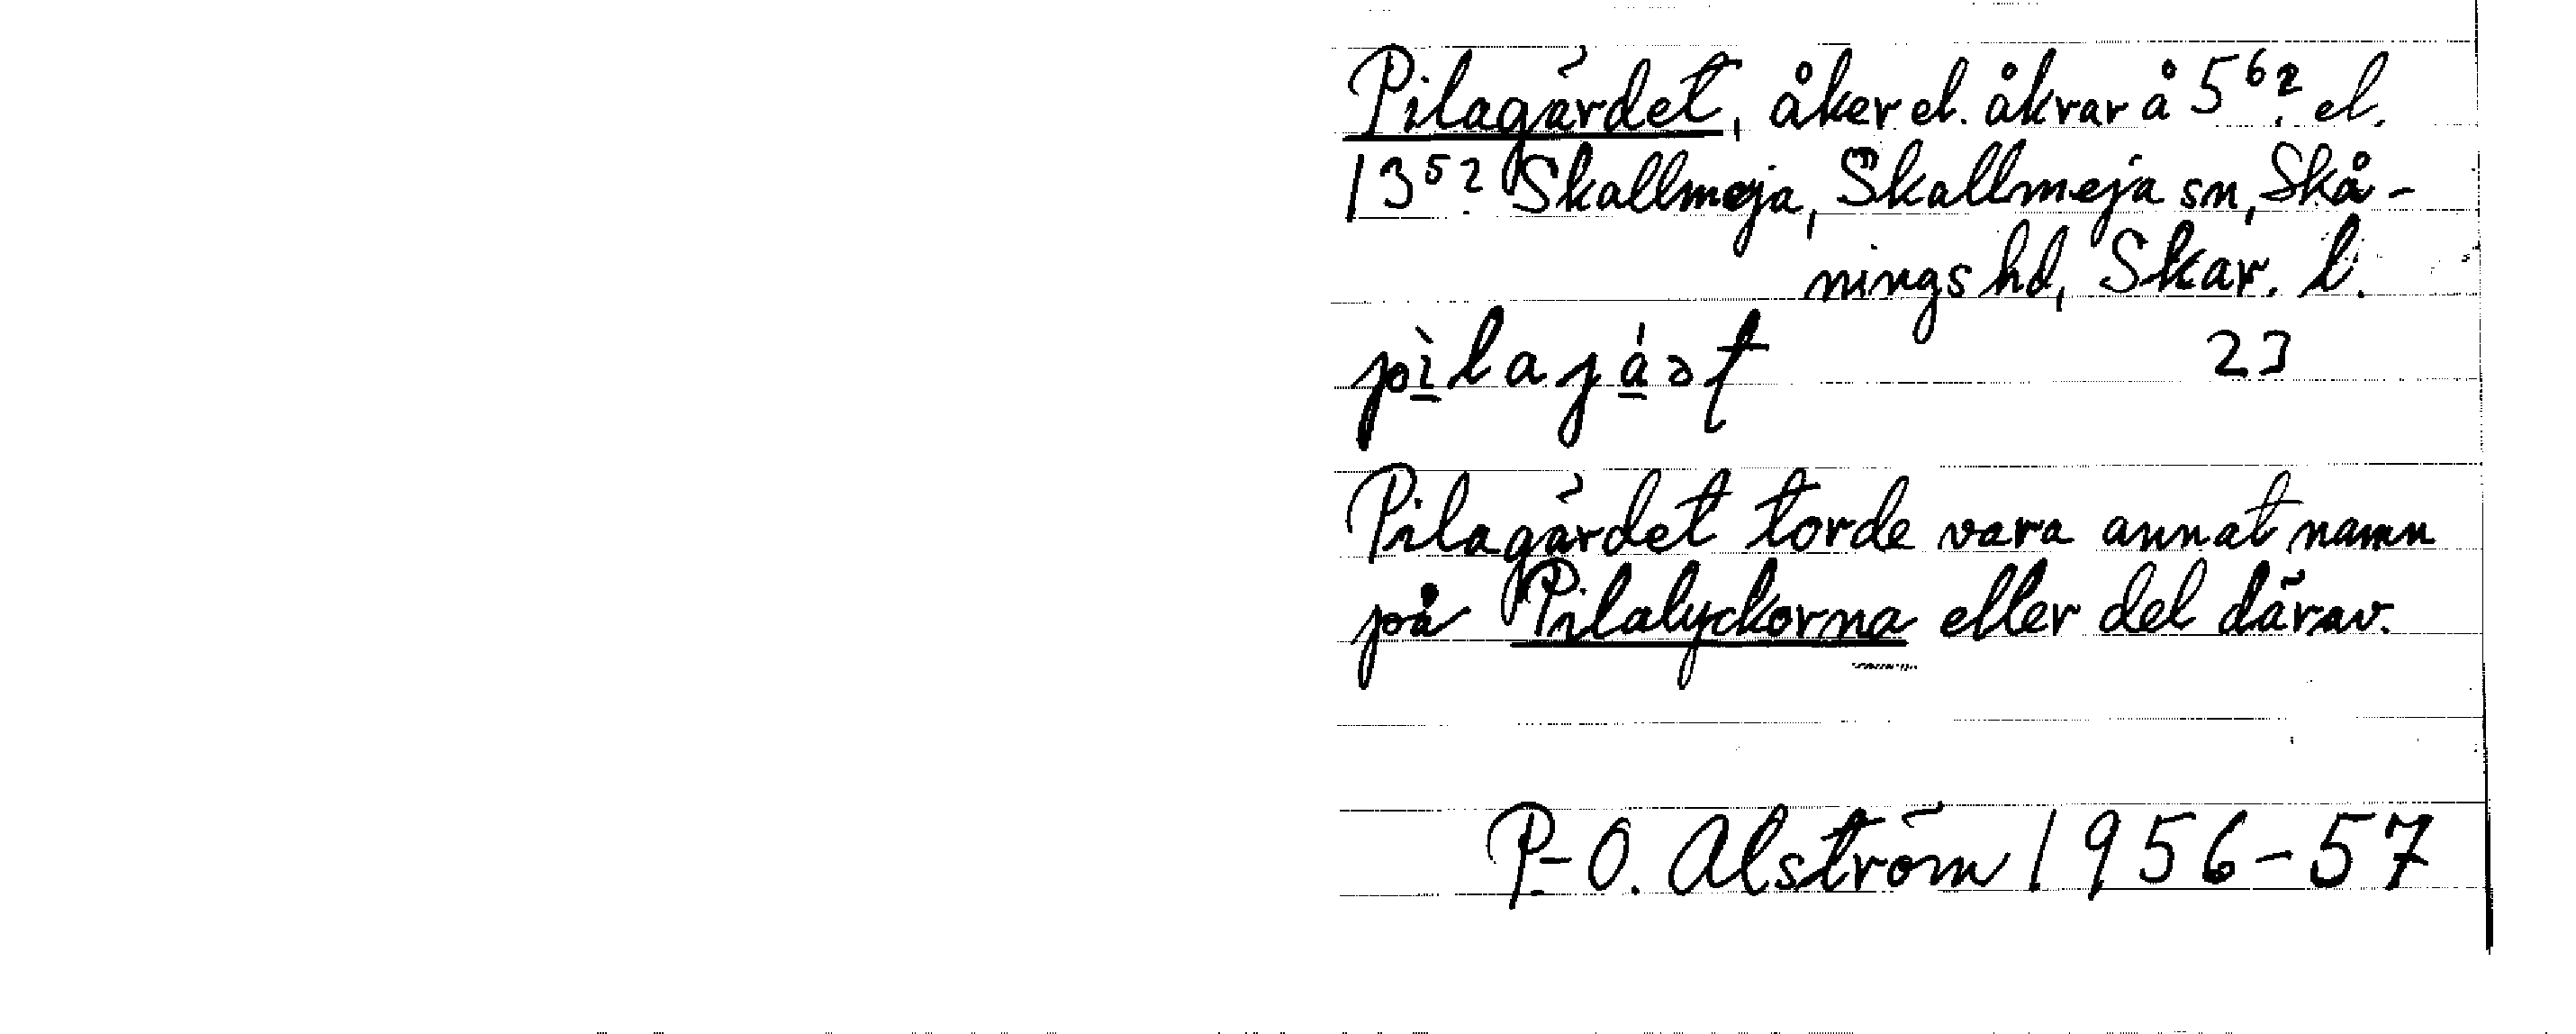 Pilagärdet, åker el. åkrar å 5⁶? el.
13⁵? Skallmeja, Skallmeja sn, Skå-
nings hd, Skar. l.
pìlajáət 23
Pilagärdet torde vara annat namn
på Pilalyckorna eller del därav.
P-O. Alström 1956-57